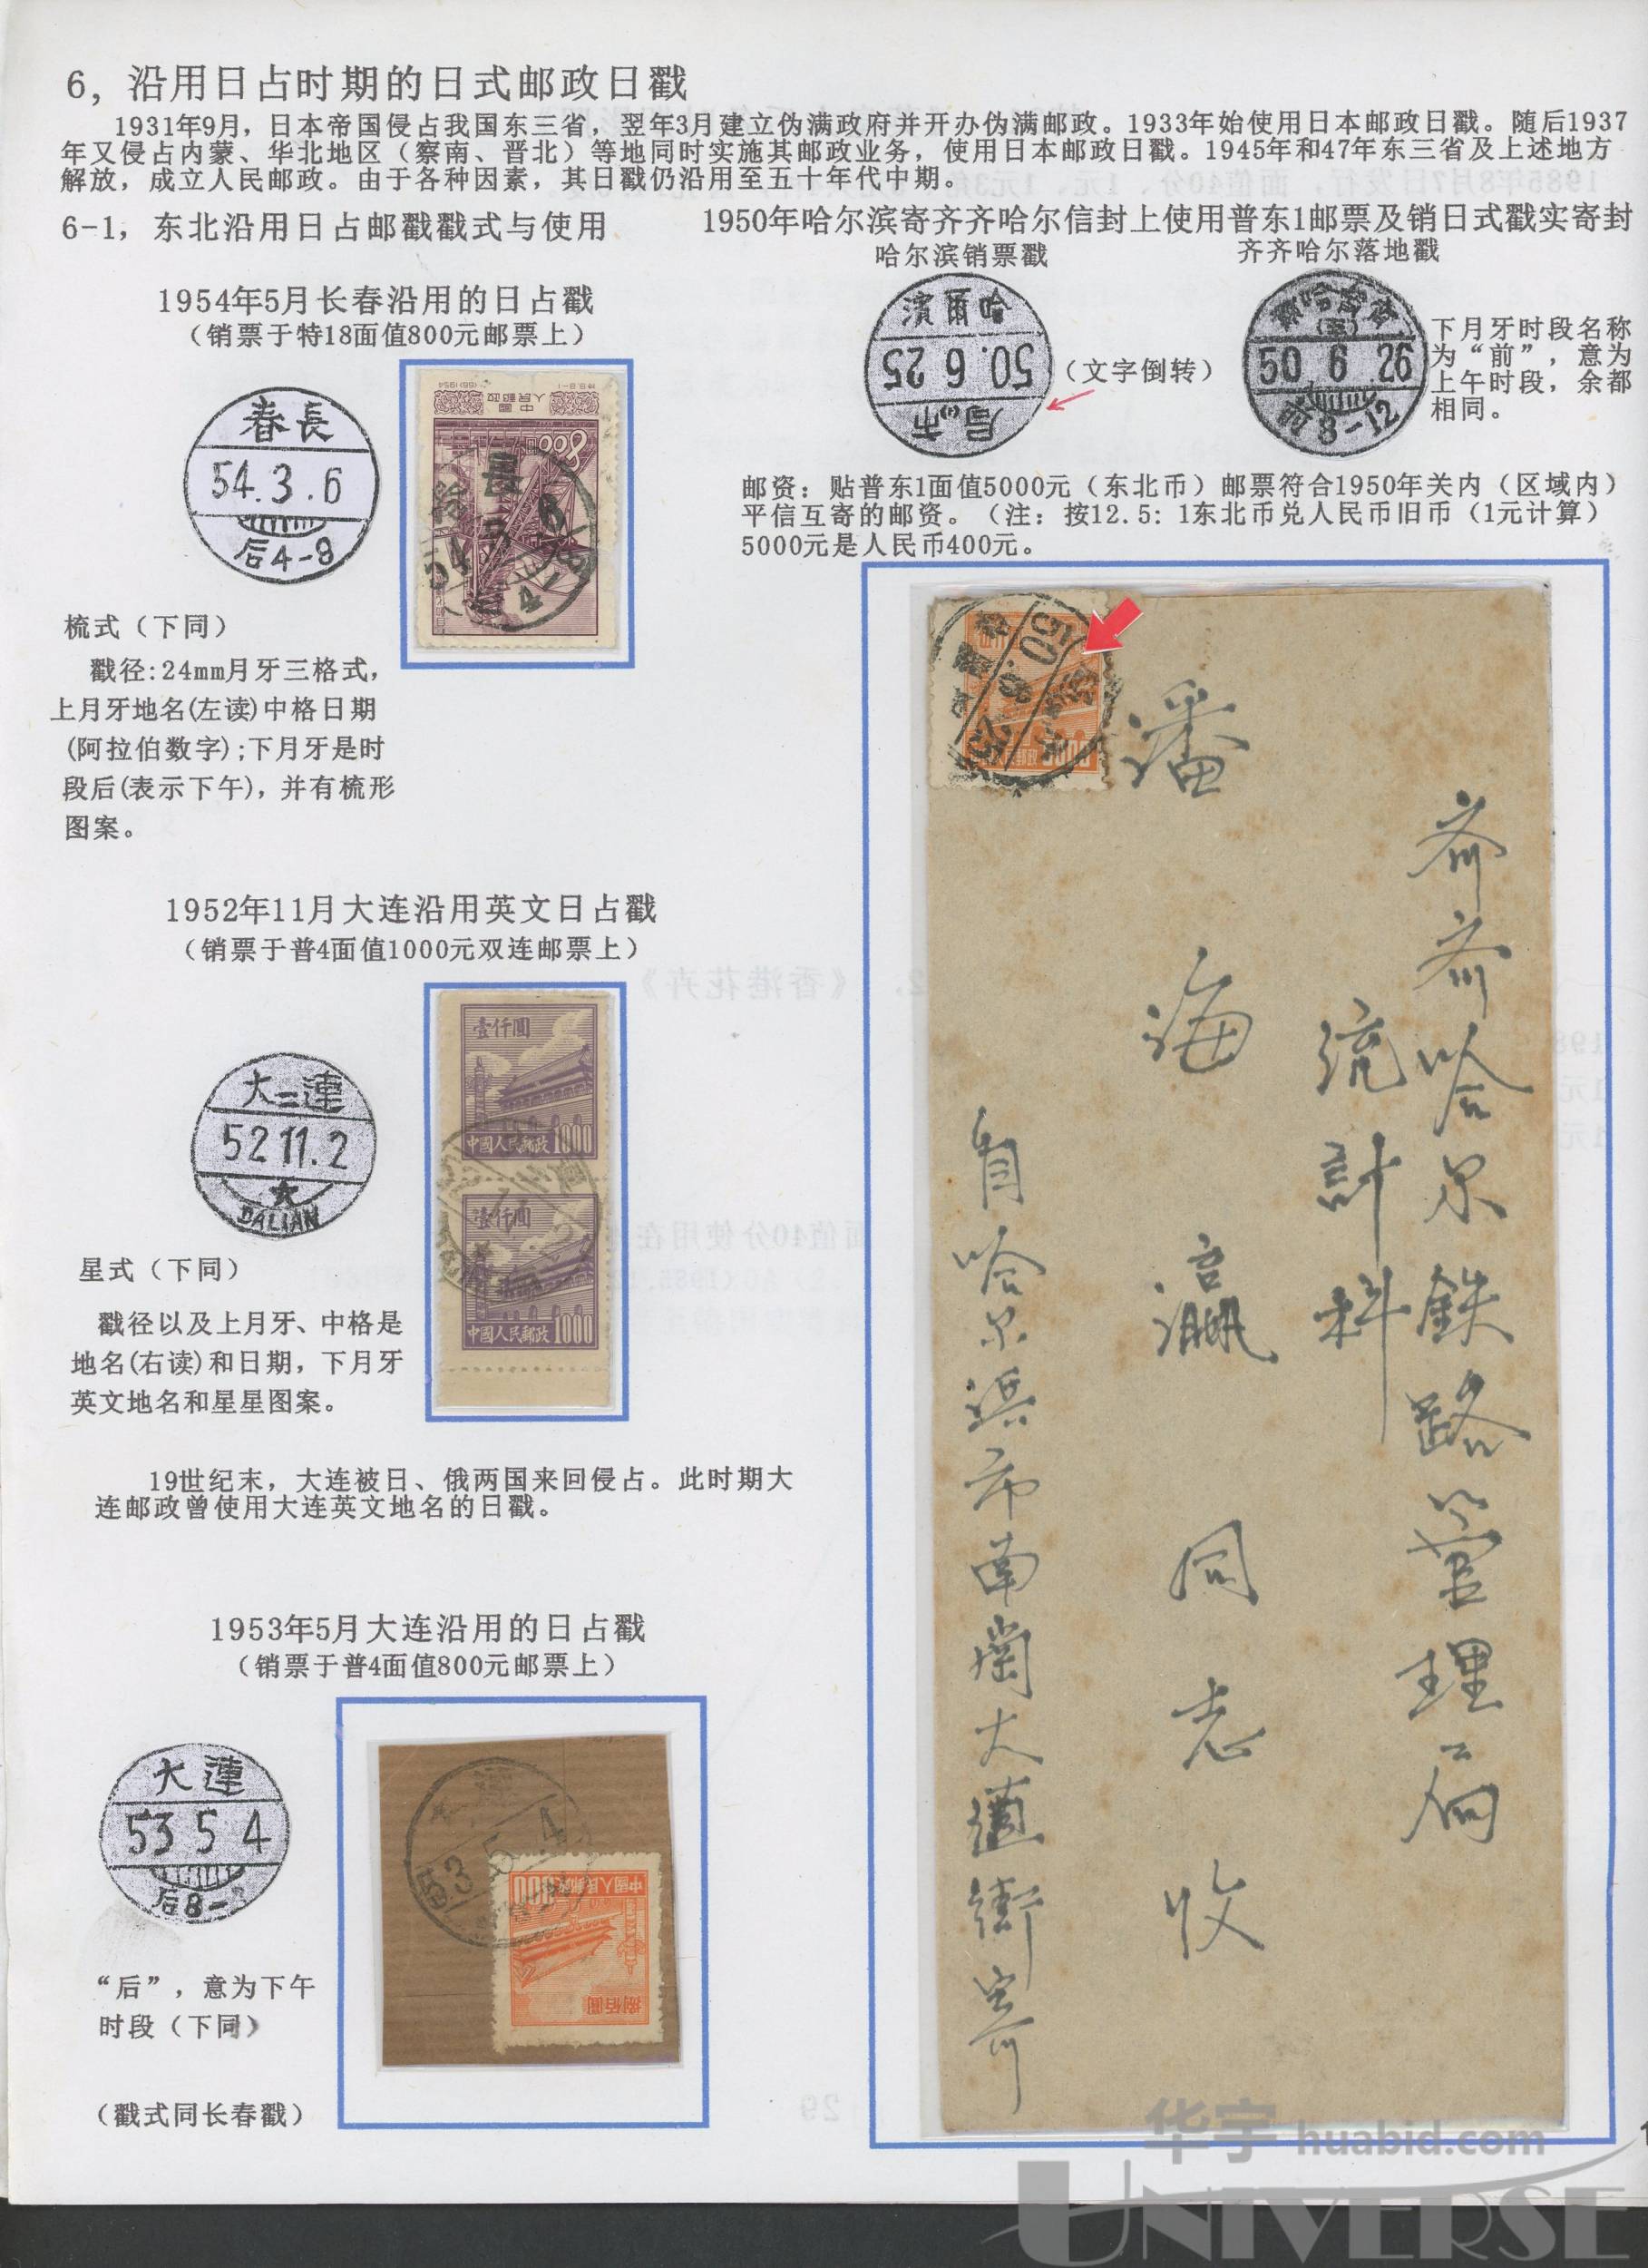 6，沿用日占时期的日式邮政日戳
1931年9月，日本帝国侵占我国东三省，翌年3月建立伪满政府并开办伪满邮政。1933年始使用日本邮政日戳。随后1937
年又侵占内蒙、华北地区（察南、晋北）等地同时实施其邮政业务，使用日本邮政日戳。1945年和47年东三省及上述地方
解放，成立人民邮政。由于各种因素，其日戳仍沿用至五十年代中期。
6-1，东北沿用日占邮戳戳式与使用
1954年5月长春沿用的日占戳
（销票于特18面值800元邮票上）
春長
54.3.6
后4-8
中國人民郵政
800
54.3.6
梳式（下同）
戳径:24mm月牙三格式，
上月牙地名(左读)中格日期
(阿拉伯数字);下月牙是时
段后(表示下午)，并有梳形
图案。
1952年11月大连沿用英文日占戳
（销票于普4面值1000元双连邮票上）
大連
52 11.2
DALIAN
壹仟圆
中國人民郵政1000
壹仟圆
中國人民郵政1000
星式（下同）
戳径以及上月牙、中格是
地名(右读)和日期，下月牙
英文地名和星星图案。
19世纪末，大连被日、俄两国来回侵占。此时期大
连邮政曾使用大连英文地名的日戳。
1953年5月大连沿用的日占戳
（销票于普4面值800元邮票上）
大連
53 5 4
后8-
53.5.4
中國人民郵政800
捌佰圆
“后”，意为下午
时段（下同）
（戳式同长春戳）
1950年哈尔滨寄齐齐哈尔信封上使用普东1邮票及销日式戳实寄封
哈尔滨销票戳
哈爾濱
50.6 25
市局
（文字倒转）
齐齐哈尔落地戳
50 6 26
前8-12
下月牙时段名称
为“前”，意为
上午时段，余都
相同。
邮资：贴普东1面值5000元（东北币）邮票符合1950年关内（区域内）
平信互寄的邮资。（注：按12.5：1东北币兑人民币旧币（1元计算）
5000元是人民币400元。
齐齐哈尔鉄路管理局
统計科
潘海瀛同志收
自哈尔滨市南崗大道街寄
华宇 huabid.com
UNIVERSE